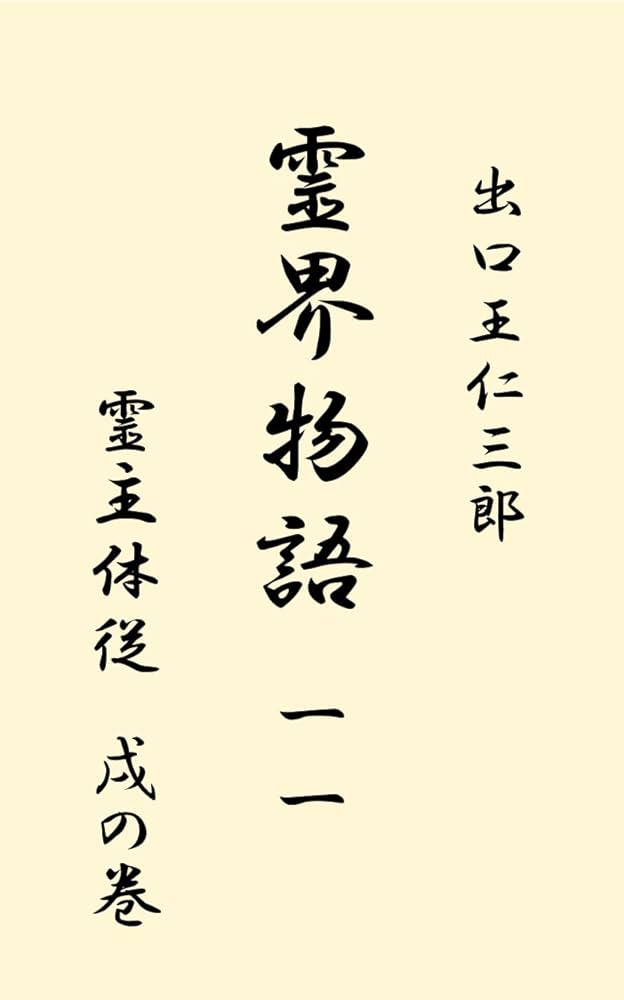 出口王仁三郎
霊界物語 一一
霊主体従 戌の巻